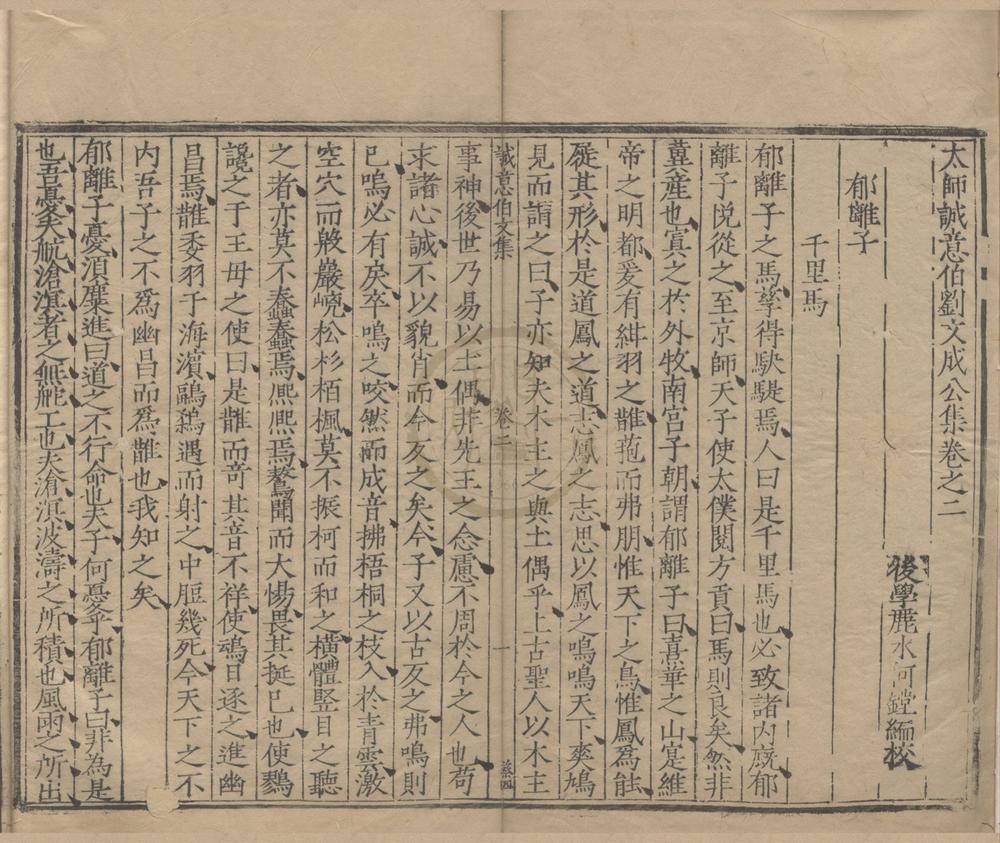 太師誠意伯劉文成公集卷之二
後學麗水何鏜編校
郁離子
千里馬
郁離子之馬孳得駃騠焉人曰是千里馬也必致諸內廐郁
離子悅從之至京師天子使太僕閱方貢曰馬則良矣然非
冀產也寘之於外牧南宮子朝謂郁離子曰熹華之山寔維
帝之明都爰有紺羽之鵲菢而弗朋惟天下之鳥惟鳳爲能
屣其形於是道鳳之道志鳳之志思以鳳之鳴鳴天下奭鳩
見而謂之曰子亦知夫木主之與土偶乎上古聖人以木主
誠意伯文集 卷二 一 蔡四
事神後世乃易以土偶非先王之念慮不周於今之人也苟
求諸心誠不以貌肖而今反之矣今子又以古反之弗鳴則
已鳴必有戾卒鳴之咬然而成音拂梧桐之枝入於青雲激
空穴而殷巖峣松杉栢楓莫不振柯而和之橫體豎目之聽
之者亦莫不蠢蠢焉熈熈焉鶩聞而大惕畏其挻已也使鷚
讒之于王母之使曰是鵲而竒其音不祥使䳋日逐之進幽
昌焉鵲委羽于海濵鷊鶂遇而射之中脰幾死今天下之不
內吾子之不爲幽昌而爲鵲也我知之矣
郁離子憂湏麋進曰道之不行命也夫子何憂乎郁離子曰非為是
也吾憂夫航滄溟者之無舵工也夫滄溟波濤之所積也風雨之所出